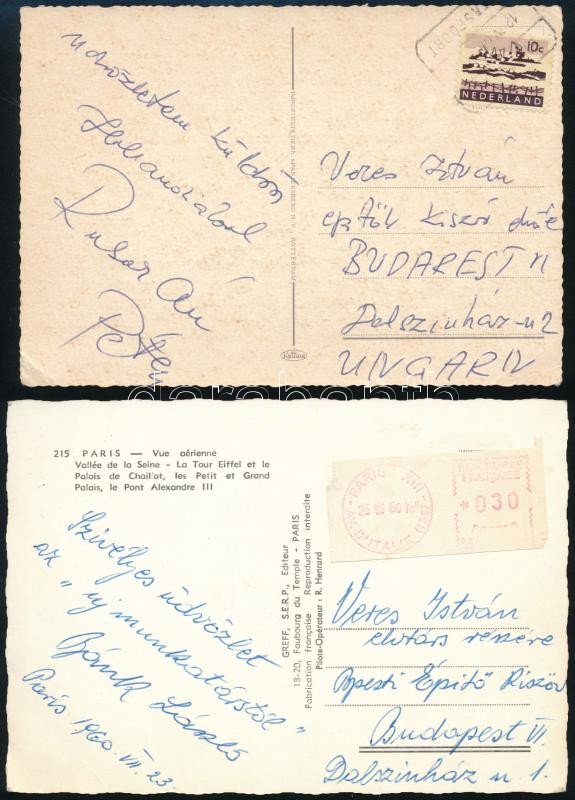 Üdvözletem küldöm
Hollandiából
Péter
10c
NEDERLAND
Veres István
BUDAPEST VI
Dalszinház-u 2
UNGARN
darabanth
215 PARIS — Vue aérienne
Vallée de la Seine - La Tour Eiffel et le
Palais de Chaillot, les Petit et Grand
Palais, le Pont Alexandre III
Szívélyes üdvözlet
az "új munkatárstól"
Bánk László
Páris 1960. VII. 23.
GREFF, S.E.R.P., Editeur
18-20, Faubourg du Temple - PARIS
Fabrication française Reproduction interdite
Pilote-Opérateur : R. Henrard
PARIS XIII
25 VII 60
AV. D'ITALIE (13e)
FRANÇAISE
*030
Veres István
elvtárs részére
Bpesti Építő Kiszöv
Budapest VI.
Dalszinház u. 1.